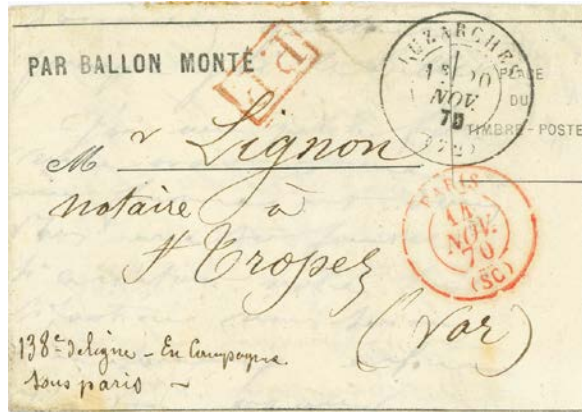 PAR BALLON MONTÉ
P.P.
LUZARCHES
20
NOV.
70
(72)
PLACE
DU
TIMBRE-POSTE
Mr Lignon
notaire à
St Tropez
(Var)
PARIS
14
NOV.
70
(SC)
138e de ligne - En Campagne
sous paris -